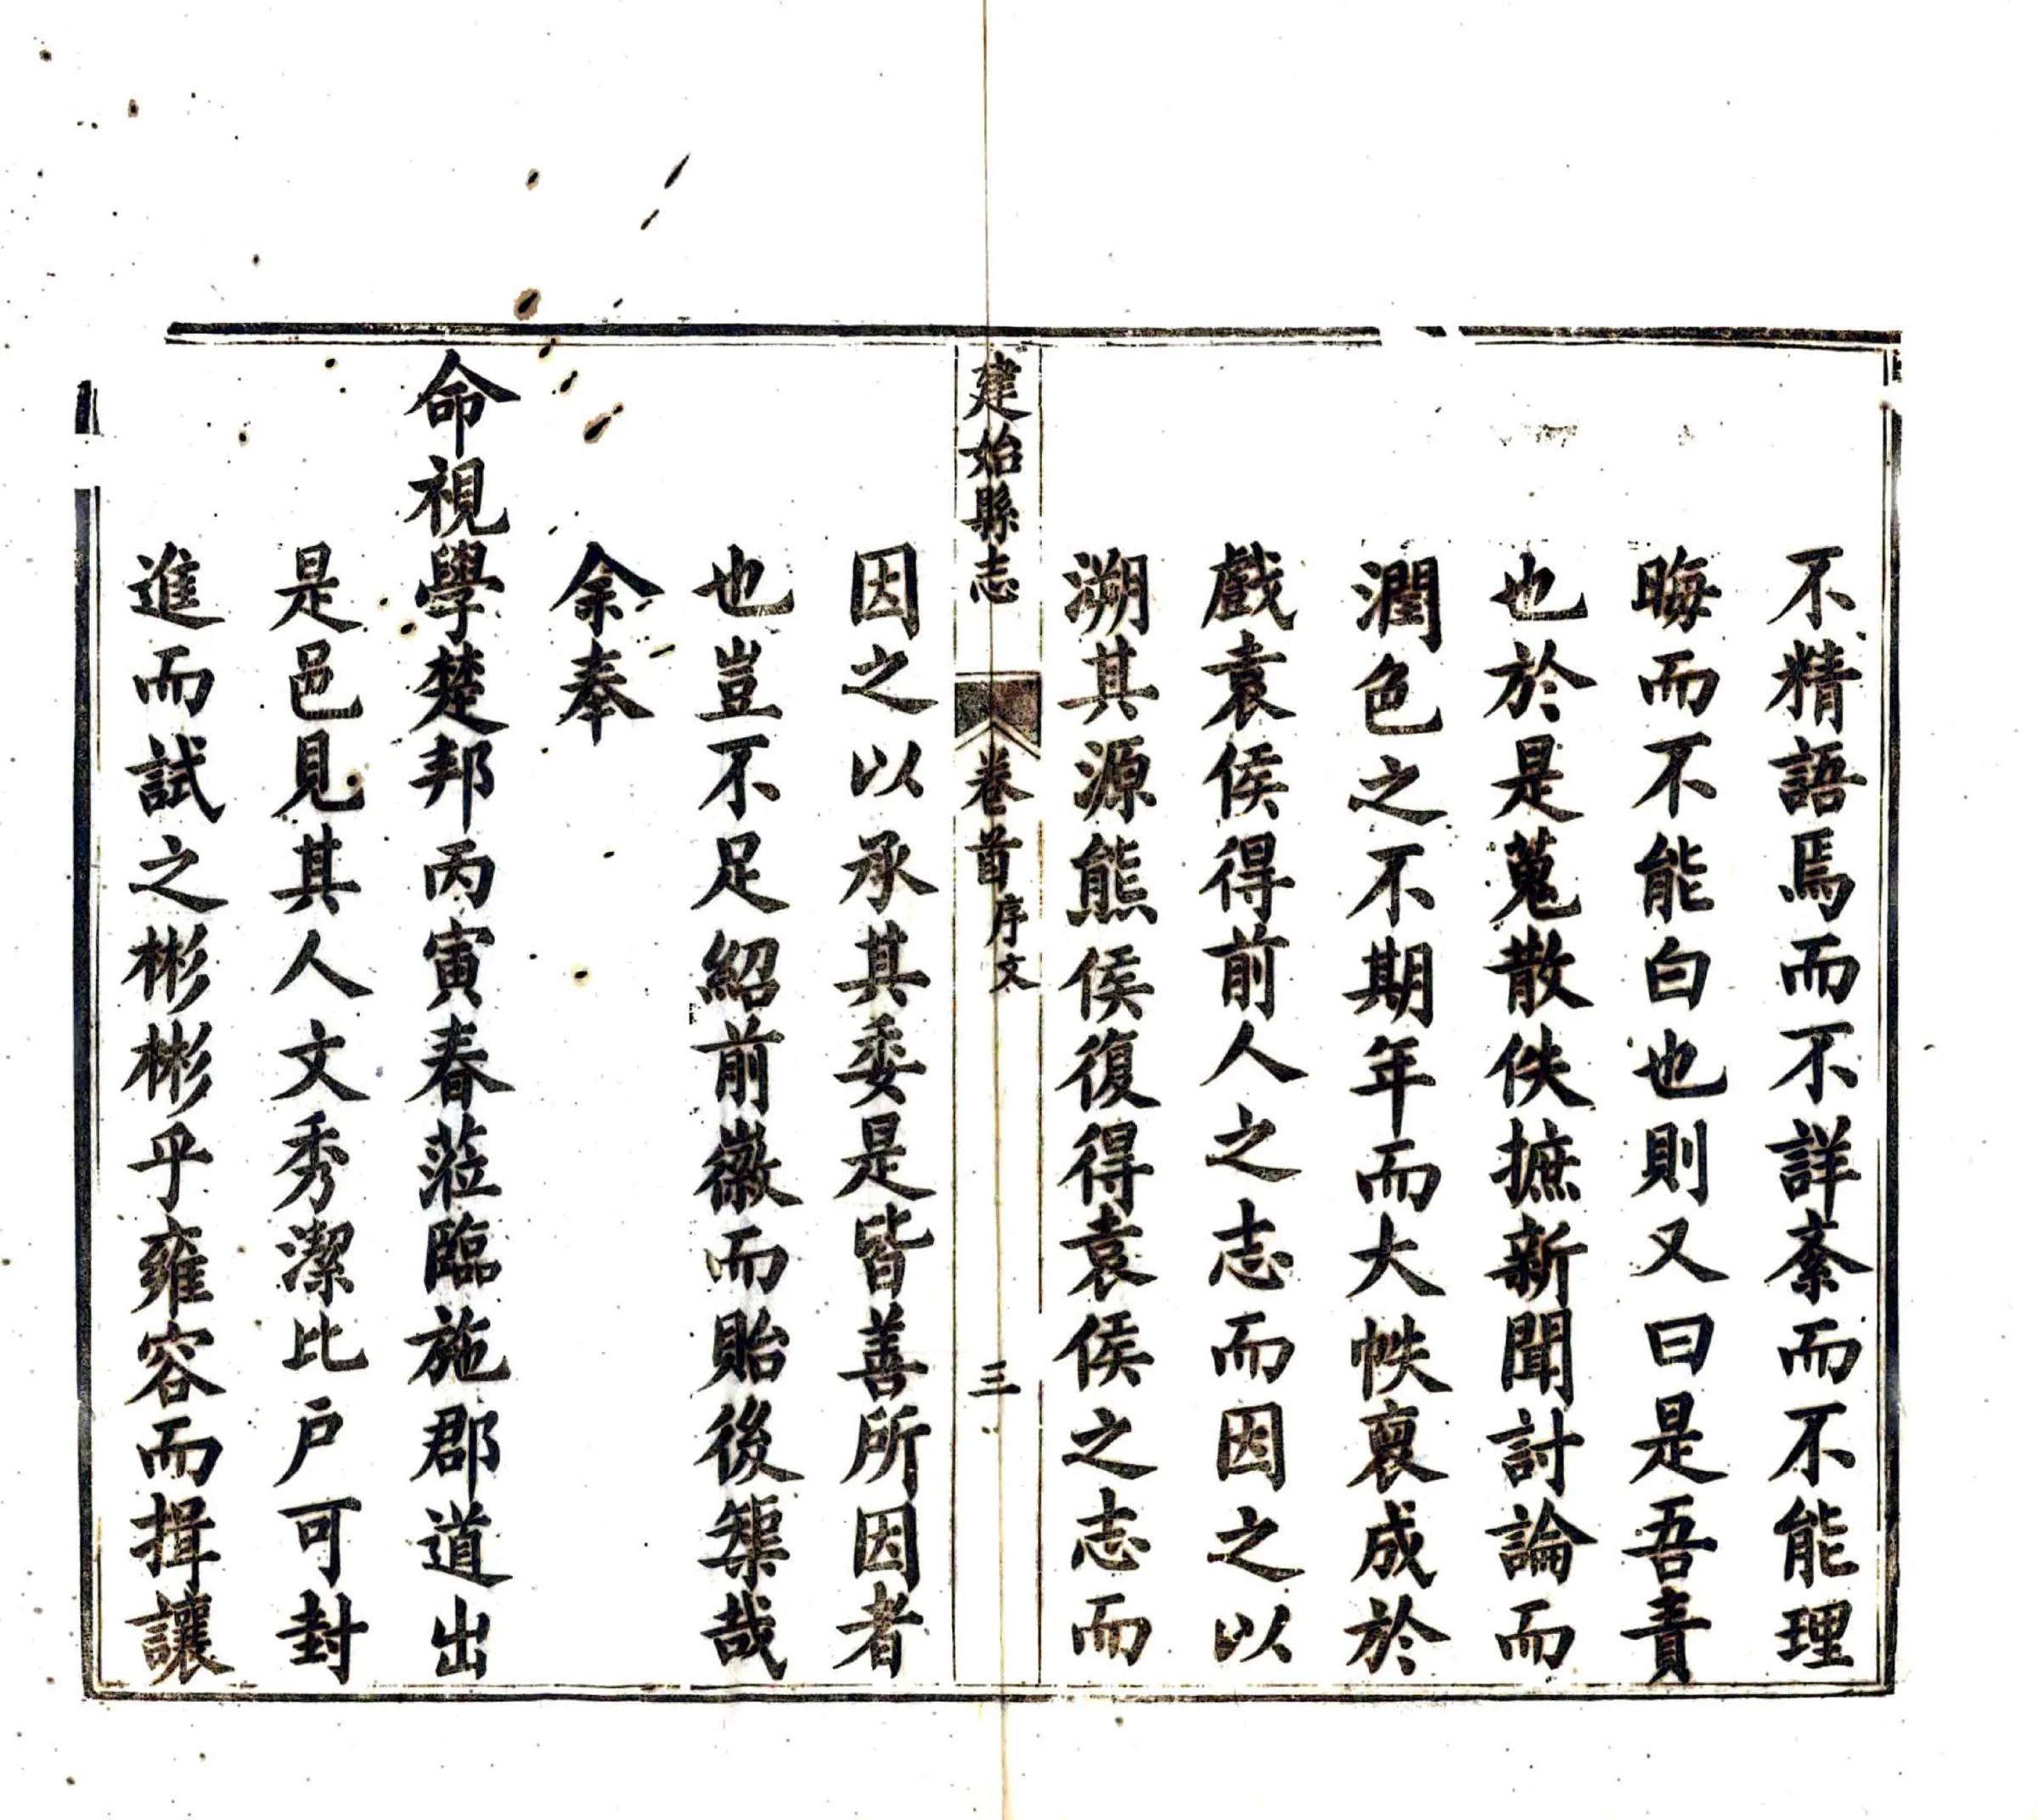 不精語焉而不詳紊而不能理
晦而不能白也則又曰是吾責
也於是蒐散佚摭新聞討論而
潤色之不期年而大帙裒成於
戲袁侯得前人之志而因之以
溯其源熊侯復得袁侯之志而
建始縣志 卷首 序文 三
因之以承其委是皆善所因者
也豈不足紹前徽而貽後榘哉
余奉
命視學楚邦丙寅春蒞臨施郡道出
是邑見其人文秀潔比户可封
進而試之彬彬乎雍容而揖讓